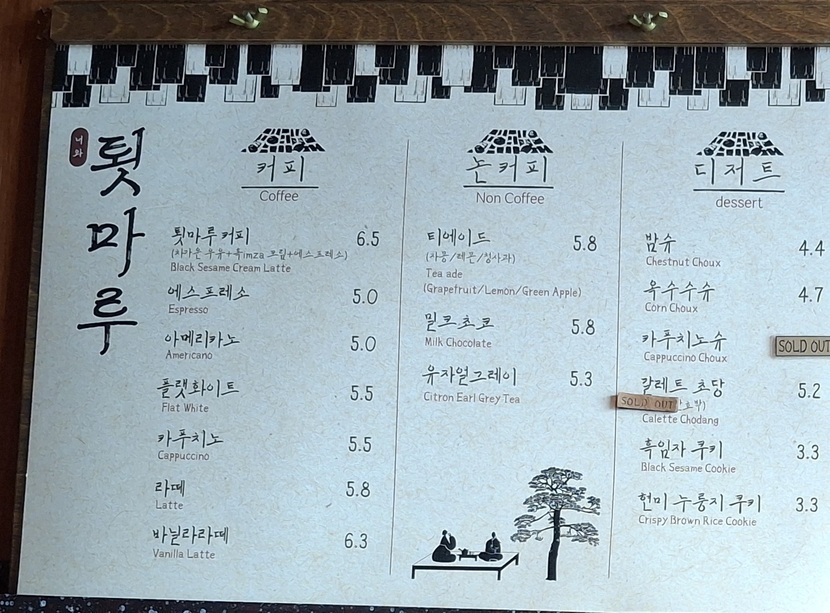 너와
툇마루
커피
Coffee
툇마루 커피 6.5
(차가운 우유+흑imza 크림+에스프레소)
Black Sesame Cream Latte
에스프레소 5.0
Espresso
아메리카노 5.0
Americano
플랫화이트 5.5
Flat White
카푸치노 5.5
Cappuccino
라떼 5.8
Latte
바닐라라떼 6.3
Vanilla Latte
논커피
Non Coffee
티에이드 5.8
(자몽/레몬/청사과)
Tea ade
(Grapefruit/Lemon/Green Apple)
밀크초코 5.8
Milk Chocolate
유자얼그레이 5.3
Citron Earl Grey Tea
디저트
dessert
밤슈 4.4
Chestnut Choux
옥수수슈 4.7
Corn Choux
카푸치노슈 SOLD OUT
Cappuccino Choux
갈레트 초당 5.2
SOLD OUT
Calette Chodang
흑임자 쿠키 3.3
Black Sesame Cookie
현미 누룽지 쿠키 3.3
Crispy Brown Rice Cookie